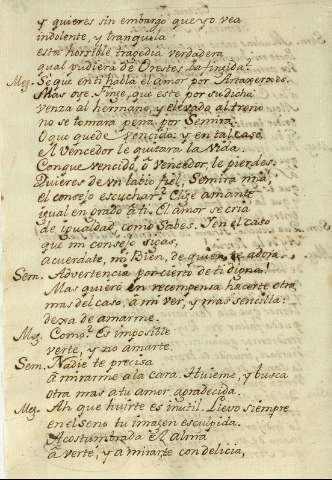 y quieres sin embargo que yo vea
indolente, y tranquila
esta horrible tragedia verdadera
qual pudiera de Orestes la fingida?
Meg. Se que en ti habla el amor por Artaxerxes.
Mas oye. Finge, que este por su dicha
venza al hermano, y elevado al treno
no se tomara pena por Semira.
O que quede vencido: y en tal caso
el Vencedor le quitara la vida.
Con que vencido, o vencedor, le pierdes.
Quieres de un labio fiel, Semira mia,
el consejo escuchar? Elige amante
igual en grado a ti. El amor se cria
de igualdad, como sabes. Y en el caso
que mi consejo sigas,
acuerdate, mi Bien, de quien te adora.
Sem. Advertencia por cierto de ti digna!
Mas quierò en recompensa hacerte otra
mas del caso, à mi ver, y mas sencilla:
dexa de amarme.
Meg. Como? Es imposible
verte, y no amarte.
Sem. Nadie te precisa
à mirarme a la cara. Huieme, y busca
otra mas a tu amor agradecida.
Meg. Ah que huirte es inutil. Llevo siempre
en el seno tu imagen esculpida.
Acostumbrada el alma
à verte, y a mirarte con delicia,